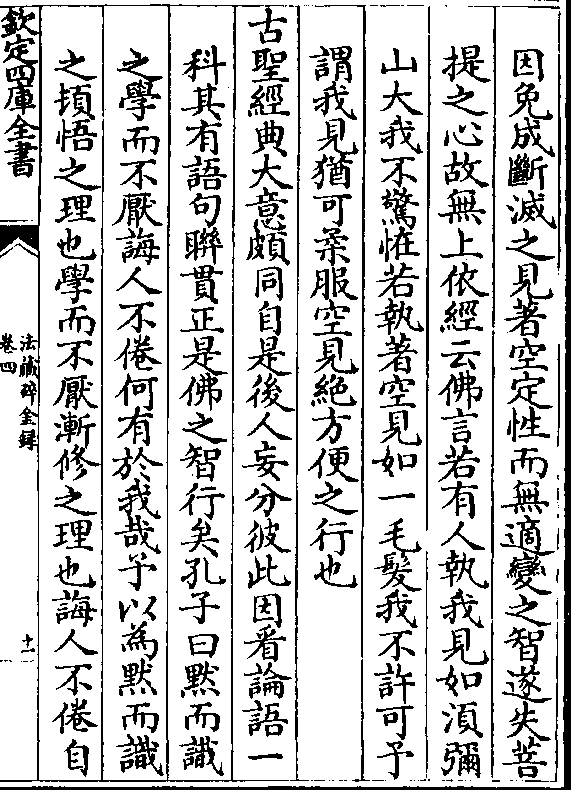 因免成斷滅之見著空定性而無適變之智遂失菩
提之心故無上依經云佛言若有人執我見如須彌
山大我不驚恠若執著空見如一毛髮我不許可予
謂我見猶可柔服空見絶方便之行也
古聖經典大意頗同自是後人妄分彼此因看論語一
科其有語句聯貫正是佛之智行矣孔子曰黙而識
之學而不厭誨人不倦何有於我哉予以為黙而識
之頓悟之理也學而不厭漸修之理也誨人不倦自
欽定四庫全書
法藏碎金録
卷四
十一